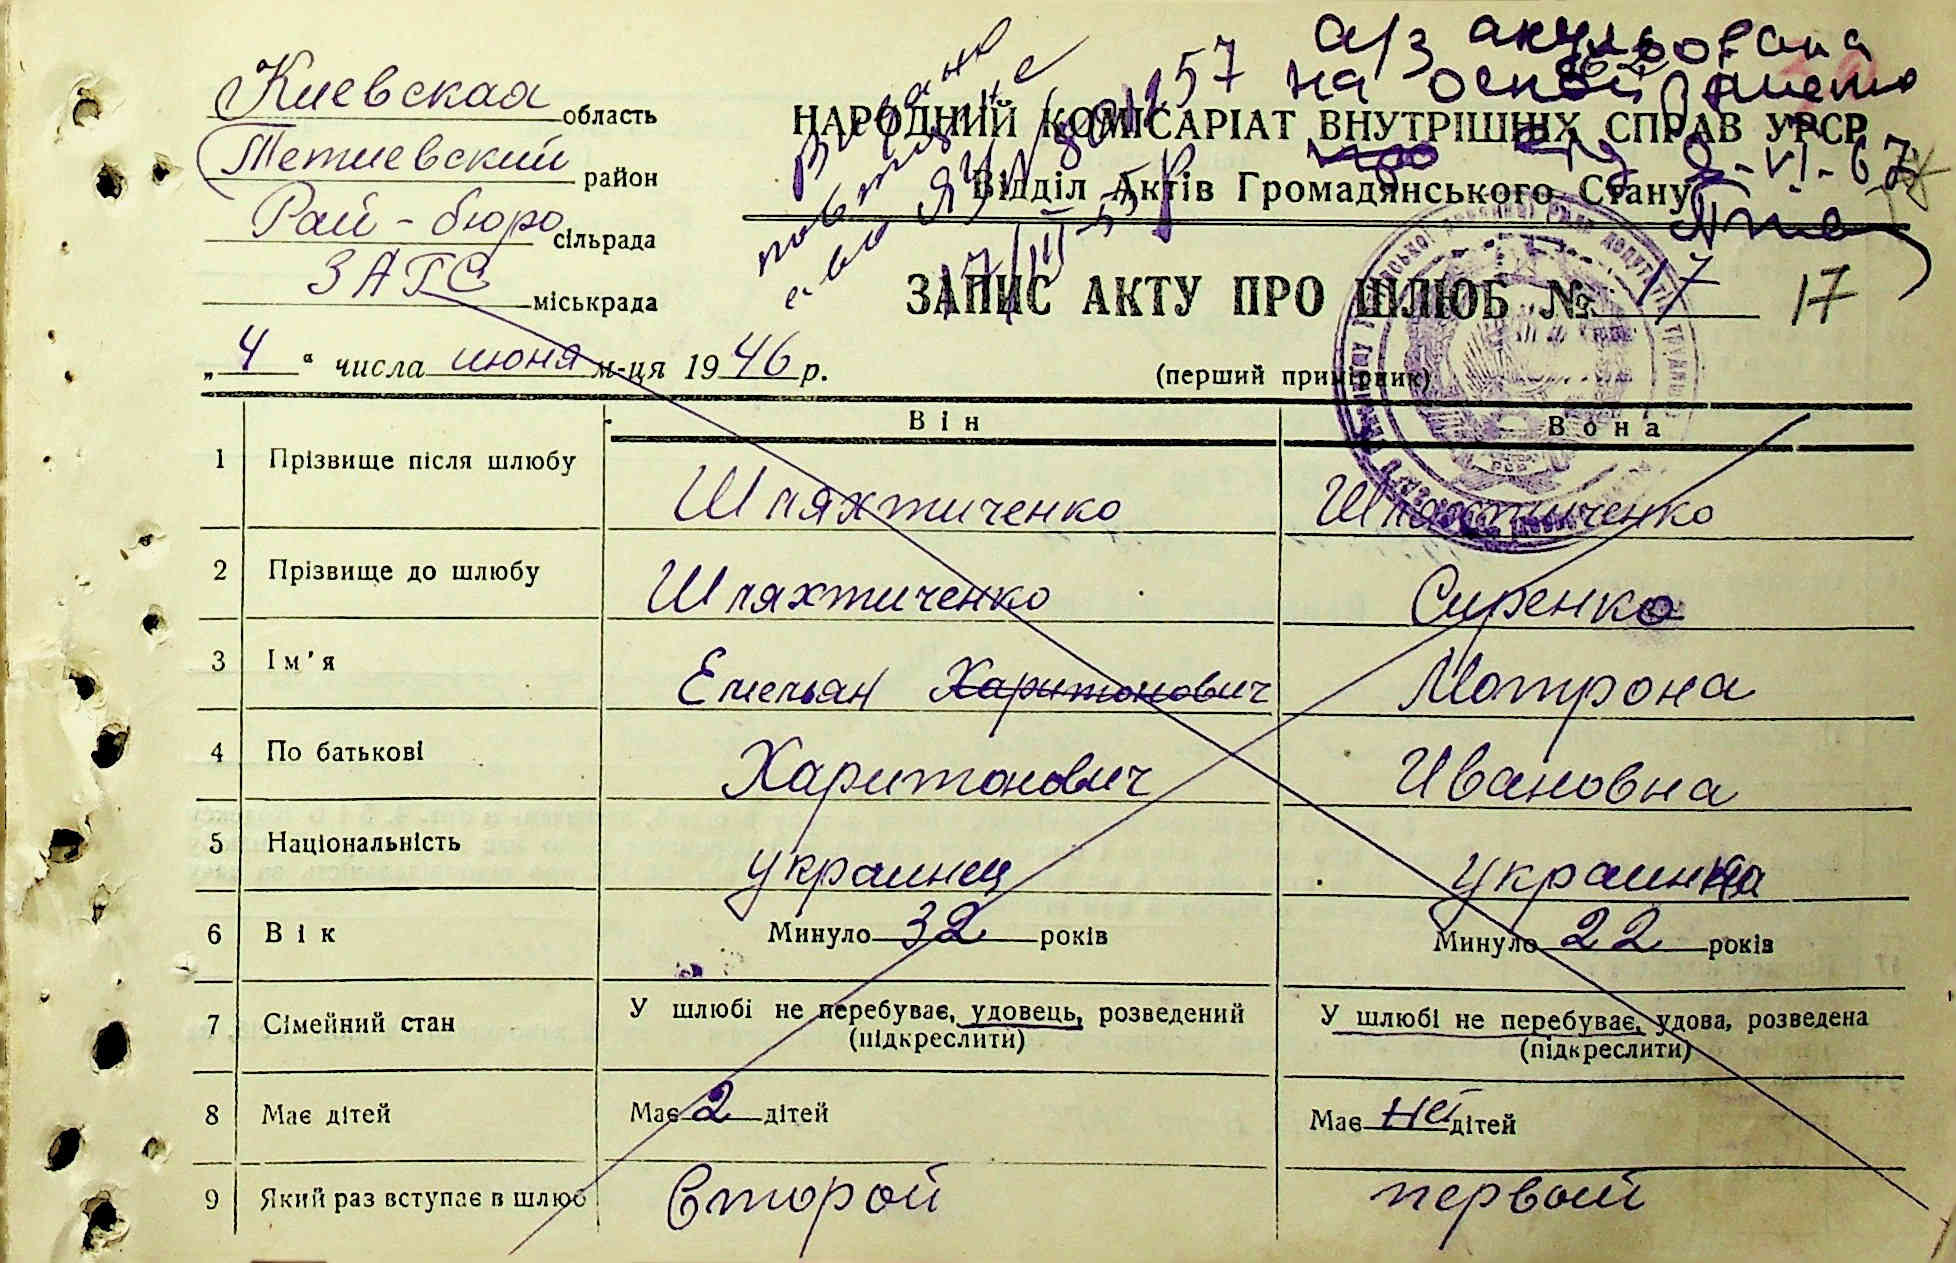 а/з анульована
на основі
Видано
повторне
Киевская область
НАРОДНИЙ КОМІСАРІАТ ВНУТРІШНІХ СПРАВ УРСР
Тетиевский район
про 2-VI-67
Відділ Актів Громадянського Стану
Рай-бюро сільрада
17/III-57
ЗАГС міськрада
ЗАПИС АКТУ ПРО ШЛЮБ № 17 17
„4“ числа июня м-ця 1946 р.
(перший примірник)
Він Вона
1 Прізвище після шлюбу Шляхтиченко Шляхтиченко
2 Прізвище до шлюбу Шляхтиченко Сиренко
3 Ім'я Емельян Харитонович Мотрона
4 По батькові Харитонович Ивановна
5 Національність украинец украинка
6 Вік Минуло 32 років Минуло 22 років
7 Сімейний стан У шлюбі не перебуває, удовець, розведений У шлюбі не перебуває, удова, розведена
(підкреслити) (підкреслити)
8 Має дітей Має 2 дітей Має нет дітей
9 Який раз вступає в шлюб Второй первый